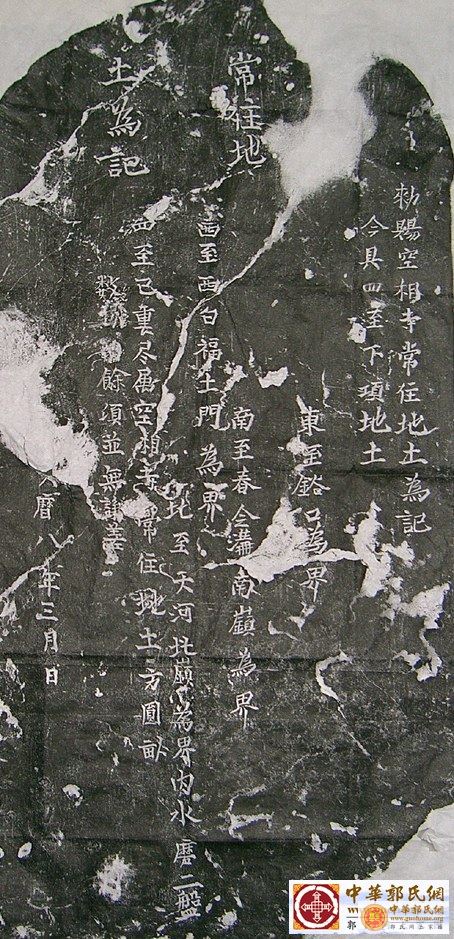 常住地
土為記
勑賜空相寺常住地土為記
今具四至下項地土
東至 口為界
南至春 南嶺為界
西至西白福土門為界
北至天河北嶺為界內水磨二盤
四至已裏尽屬空相寺常住地土方圓畝
數 餘項並無
曆八年三月日
中華郭氏網
中華郭氏網